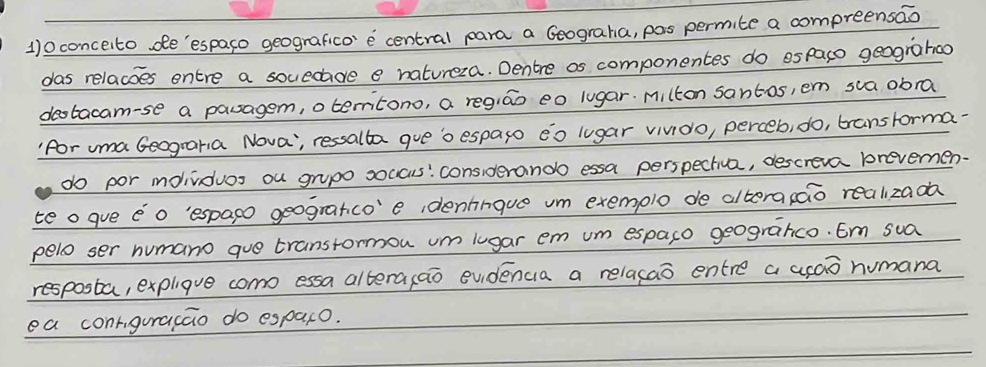 1) O conceito de 'espaço geografico' é central para a Geografia, pois permite a compreensão
das relações entre a sociedade e natureza. Dentre os componentes do espaço geográfico
destacam-se a paisagem, o território, a região e o lugar. Milton Santos, em sua obra
'Por uma Geografia Nova', ressalta que 'o espaço é o lugar vivido, percebido, transforma-
do por indivíduos ou grupo sociais'. Considerando essa perspectiva, descreva brevemen-
te o que é o 'espaço geográfico' e identifique um exemplo de alteração realizada
pelo ser humano que transformou um lugar em um espaço geográfico. Em sua
resposta, explique como essa alteração evidência a relação entre a ação humana
e a configuração do espaço.